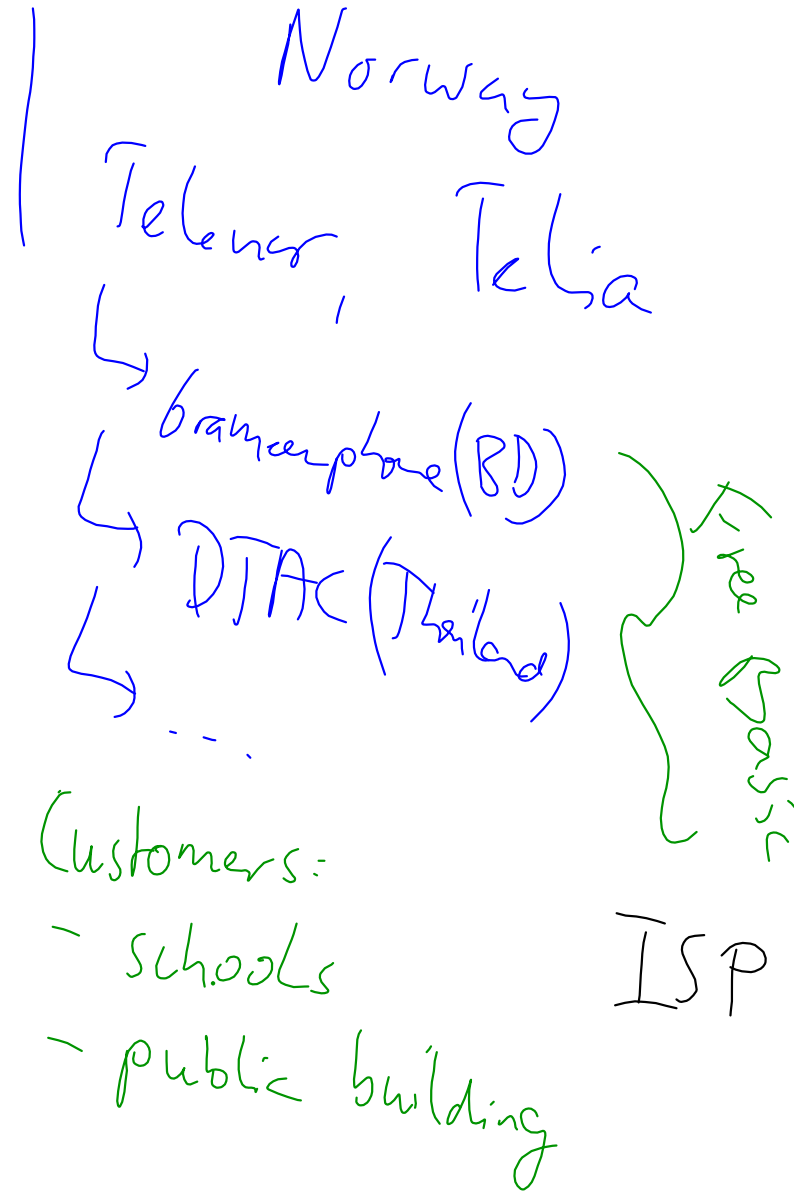 Norway
Telenor, Telia
↳ Grameenphone (BD)
↳ DTAC (Thailand)
↳ ...
Free Basic
Customers:
- schools
- public building
ISP